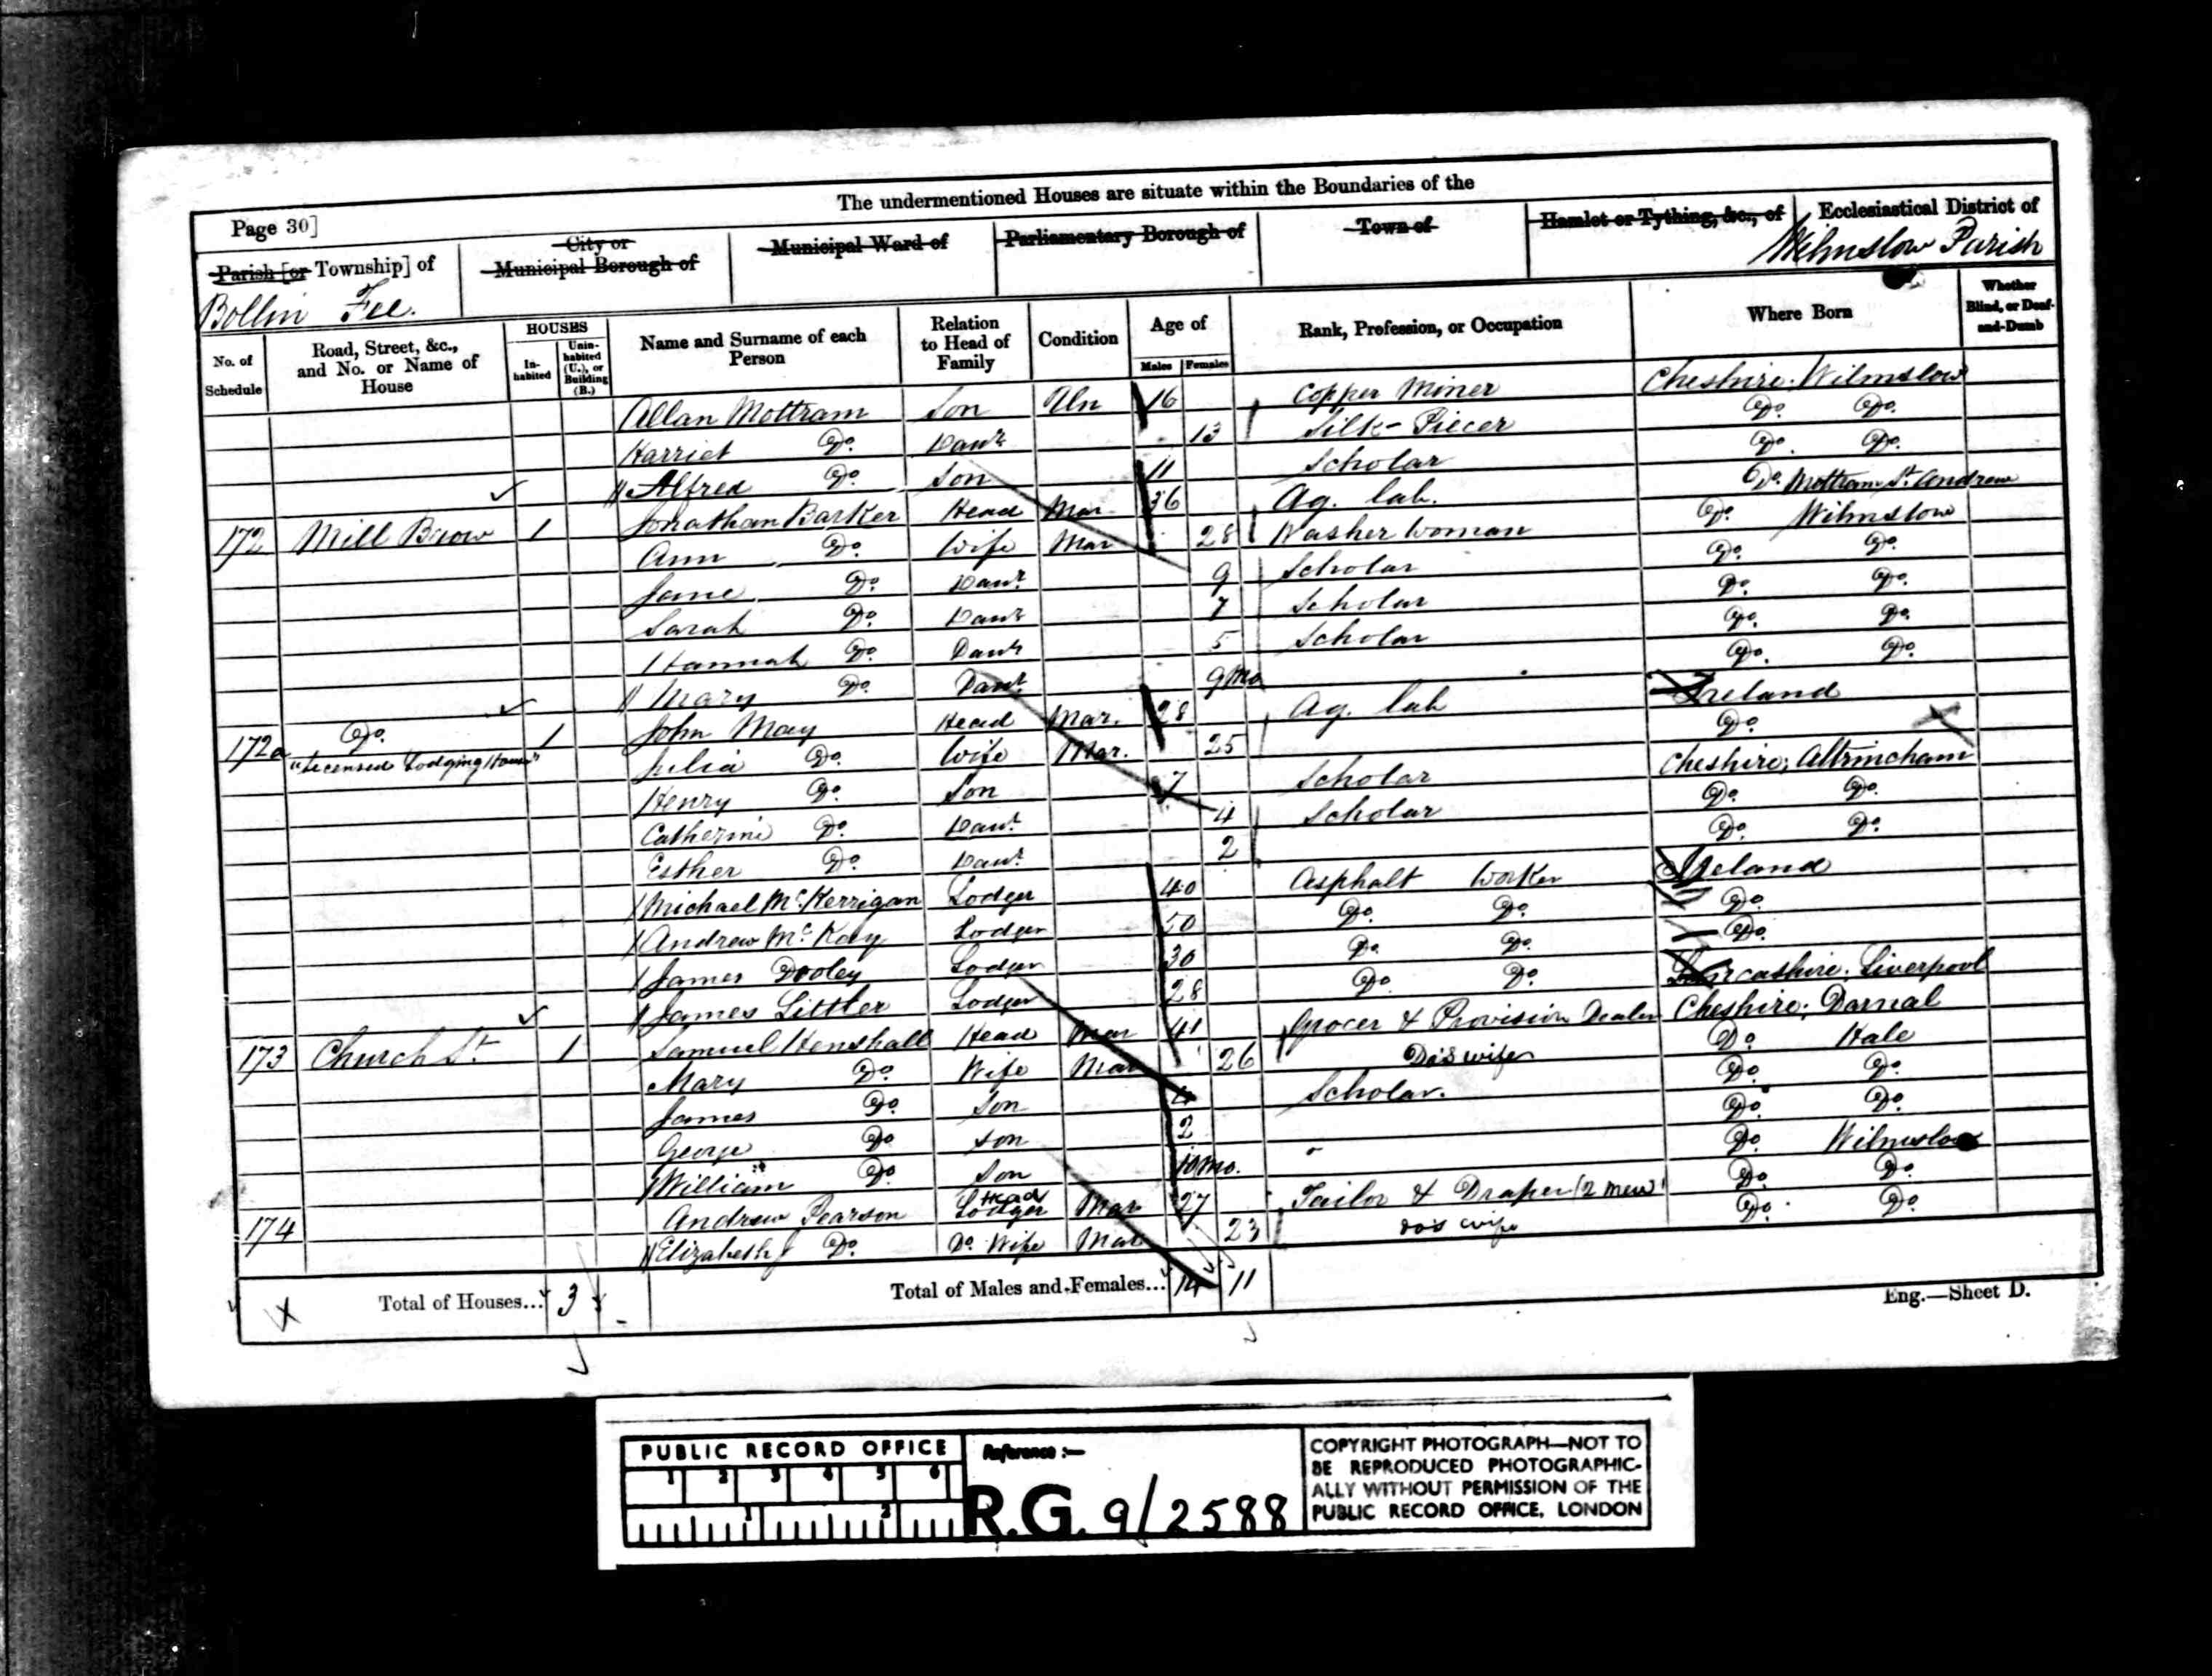 The undermentioned Houses are situate within the Boundaries of the
Page 30]
Parish [or Township] of
City or Municipal Borough of
Municipal Ward of
Parliamentary Borough of
Town of
Hamlet or Tything, &c., of
Ecclesiastical District of
Bollin Fee.
Wilmslow Parish
No. of Schedule
Road, Street, &c., and No. or Name of House
HOUSES
Inhabited
Uninhabited (U.), or Building (B.)
Name and Surname of each Person
Relation to Head of Family
Condition
Age of
Males
Females
Rank, Profession, or Occupation
Where Born
Whether Blind, or Deaf-and-Dumb
Allan Mottram Son Un 16 Copper Miner Cheshire; Wilmslow
Harriet Do. Daur. 13 Silk-Piecer Do. Do.
Alfred Do. Son 11 Scholar Do. Do.
172 Mill Brow 1 Jonathan Barker Head Mar. 36 Ag. lab. Do. Mottram St. Andrew
Ann Do. Wife Mar 28 Washer Woman Do. Wilmslow
Jane Do. Daur. 9 Scholar Do. Do.
Sarah Do. Daur. 7 Scholar Do. Do.
Hannah Do. Daur. 5 Scholar Do. Do.
Mary Do. Daur. 9 Mo Do. Do.
172a Do. 1 John May Head Mar. 28 Ag. lab Ireland
"Licensed Lodging House" Julia Do. Wife Mar. 25 Do.
Henry Do. Son 7 Scholar Cheshire; Altrincham
Catherine Do. Daur. 4 Scholar Do. Do.
Esther Do. Daur. 2 Do. Do.
Michael Mc. Kerrigan Lodger 40 Asphalt Worker Ireland
Andrew Mc Kay Lodger 50 Do. Do. Do.
James Dooley Lodger 30 Do. Do. Do.
James Littler Lodger 28 Do. Do. Lancashire. Liverpool
173 Church St. 1 Samuel Henshall Head Mar 41 Grocer & Provision Dealer Cheshire; Darnal
Mary Do. Wife Mar 26 Do's wife Do. Hale
James Do. Son 4 Scholar. Do. Do.
George Do Son 2 Do. Do.
William Do. Son 10 Mo. Do. Wilmslow
174 Andrew Pearson Lodger Head Mar 27 Tailor & Draper (2 men) Do. Do.
Elizabeth Do. Do. Wife Mar 23 Do's wife Do. Do.
Total of Houses... 3
Total of Males and Females... 14 11
Eng.—Sheet D.
PUBLIC RECORD OFFICE
1 2 3 4 5 6
1 2
Reference :—
R.G. 9/2588
COPYRIGHT PHOTOGRAPH—NOT TO
BE REPRODUCED PHOTOGRAPHIC-
ALLY WITHOUT PERMISSION OF THE
PUBLIC RECORD OFFICE, LONDON